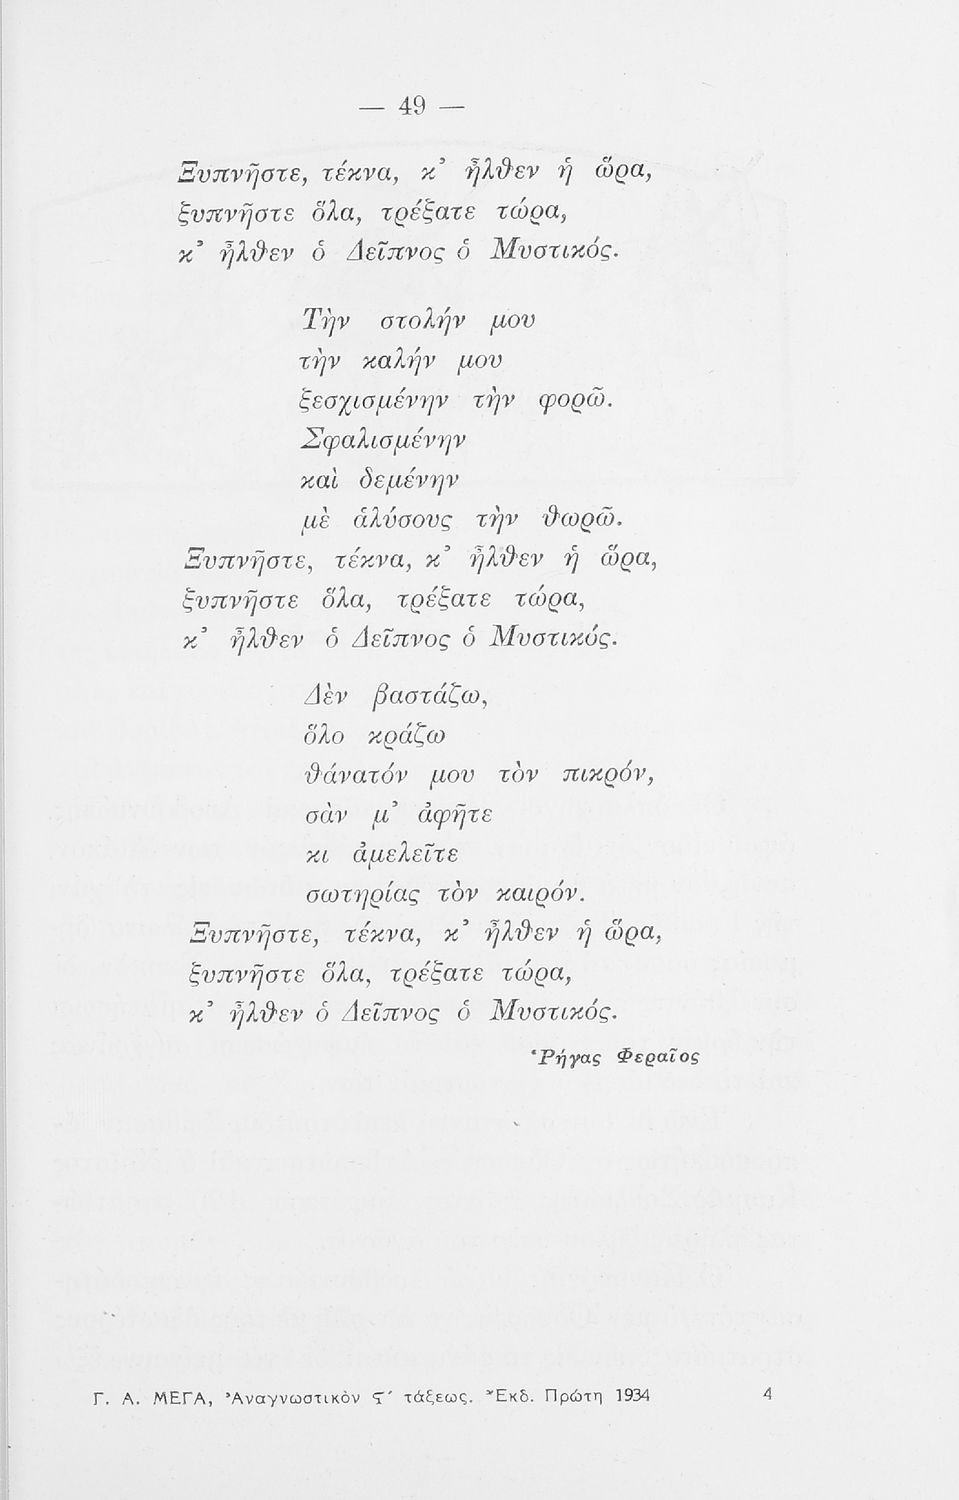 — 49 —
Ξυπνῆστε, τέκνα, κ᾿ ἦλθεν ἡ ὥρα,
ξυπνῆστε ὅλα, τρέξατε τώρα,
κ᾿ ἦλθεν ὁ Δεῖπνος ὁ Μυστικός.
Τὴν στολήν μου
τὴν καλήν μου
ξεσχισμένην τὴν φορῶ.
Σφαλισμένην
καὶ δεμένην
μὲ ἁλύσους τὴν θωρῶ.
Ξυπνῆστε, τέκνα, κ᾿ ἦλθεν ἡ ὥρα,
ξυπνῆστε ὅλα, τρέξατε τώρα,
κ᾿ ἦλθεν ὁ Δεῖπνος ὁ Μυστικός.
Δὲν βαστάζω,
ὅλο κράζω
θάνατόν μου τὸν πικρόν,
σὰν μ᾿ ἀφῆτε
κι ἀμελεῖτε
σωτηρίας τὸν καιρόν.
Ξυπνῆστε, τέκνα, κ᾿ ἦλθεν ἡ ὥρα,
ξυπνῆστε ὅλα, τρέξατε τώρα,
κ᾿ ἦλθεν ὁ Δεῖπνος ὁ Μυστικός.
Ῥήγας Φεραῖος
Γ. Α. ΜΕΓΑ, Ἀναγνωστικὸν Ϛ΄ τάξεως. Ἔκδ. Πρώτη 1934 4